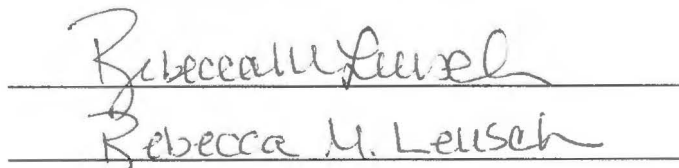 Rebecca M Leusch
Rebecca M. Leusch